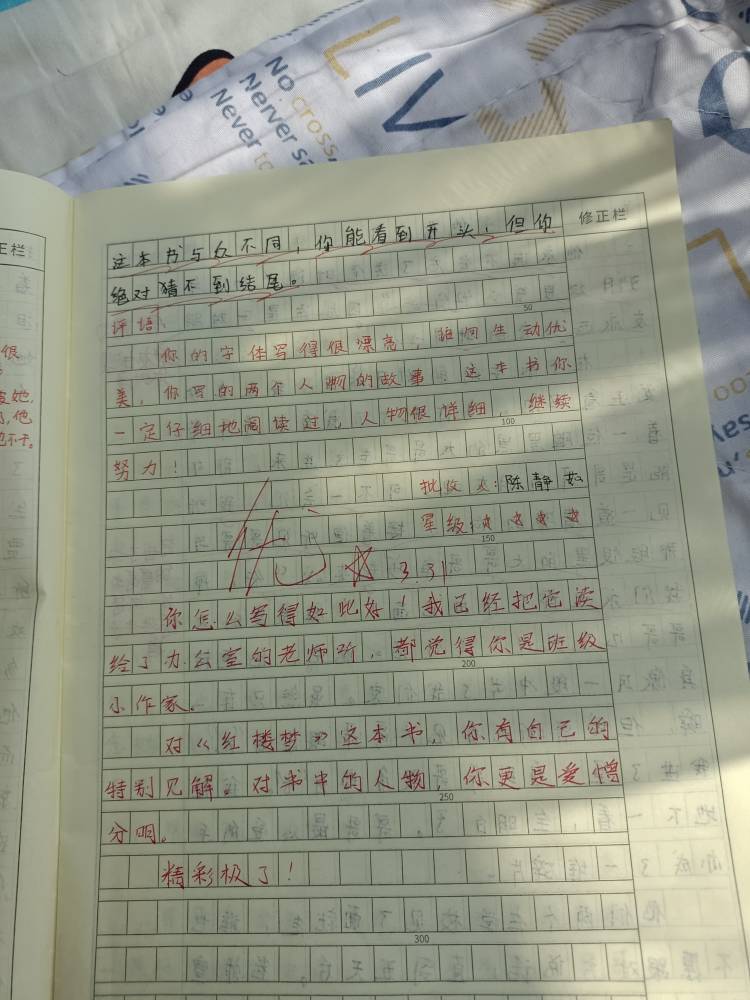 No cross,
Nerver sa
Never to
LIV
正栏
修正栏
这本书与众不同，你能看到开头，但你
绝对猜不到结尾。
50
评语：
你的字体写得很漂亮，语句生动优
美，你写的两个人物的故事，这本书你
一定仔细地阅读过，人物很详细，继续
100
努力！
批改人：陈静茹
星级：☆ ☆ ☆ ☆
150
优 ☆ 3.31
你怎么写得如此好！我已经把它读
给了办公室的老师听，都觉得你是班级
200
小作家。
对《红楼梦》这本书，你有自己的
特别见解。对书中的人物，你更是爱憎
250
分明。
精彩极了！
300